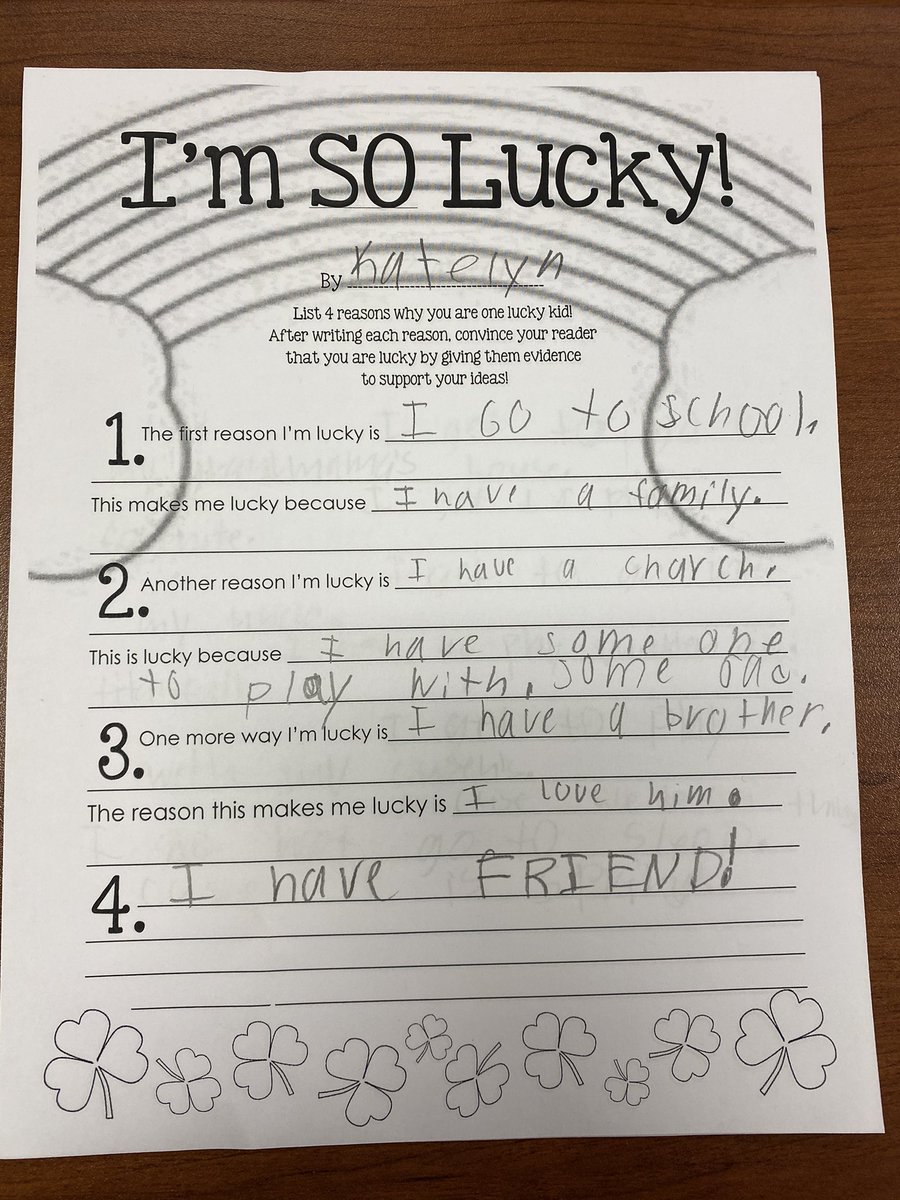 I'm SO Lucky!
By Katelyn
List 4 reasons why you are one lucky kid!
After writing each reason, convince your reader
that you are lucky by giving them evidence
to support your ideas!
1. The first reason I'm lucky is I GO to school.
This makes me lucky because I have a family.
2. Another reason I'm lucky is I have a charch.
This is lucky because I have some one
to play with. some
3. One more way I'm lucky is I have a brother.
The reason this makes me lucky is I love him.
4. I have FRIEND!